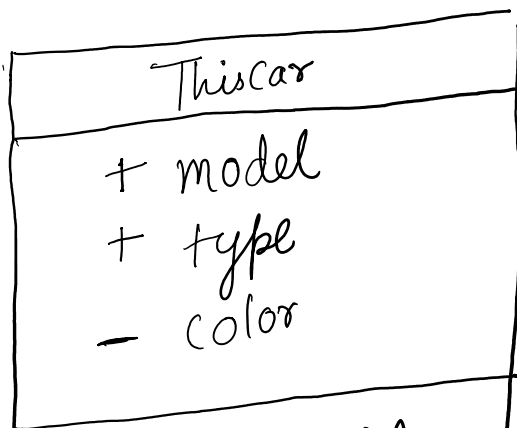 ThisCar
+ model
+ type
- color